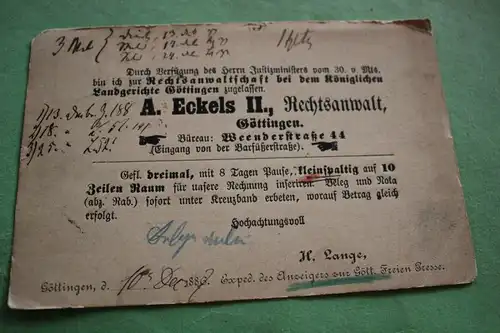 3 Mal
Durch Verfügung des Herrn Justizministers vom 30. v. Mts.
bin ich zur Rechtsanwaltschaft bei dem Königlichen
Landgerichte Göttingen zugelassen.
A. Eckels II., Rechtsanwalt,
Göttingen.
Büreau: Weenderstraße 44
(Eingang von der Barfüßerstraße).
Gefl. dreimal, mit 8 Tagen Pause, kleinspaltig auf 10
Zeilen Raum für unsere Rechnung inseriren. Beleg und Nota
(abz. Rab.) sofort unter Kreuzband erbeten, worauf Betrag gleich
erfolgt.
Hochachtungsvoll
H. Lange,
Göttingen, d. 10. Dec. 188
Exped. des Anzeigers zur Gött. Freien Presse.